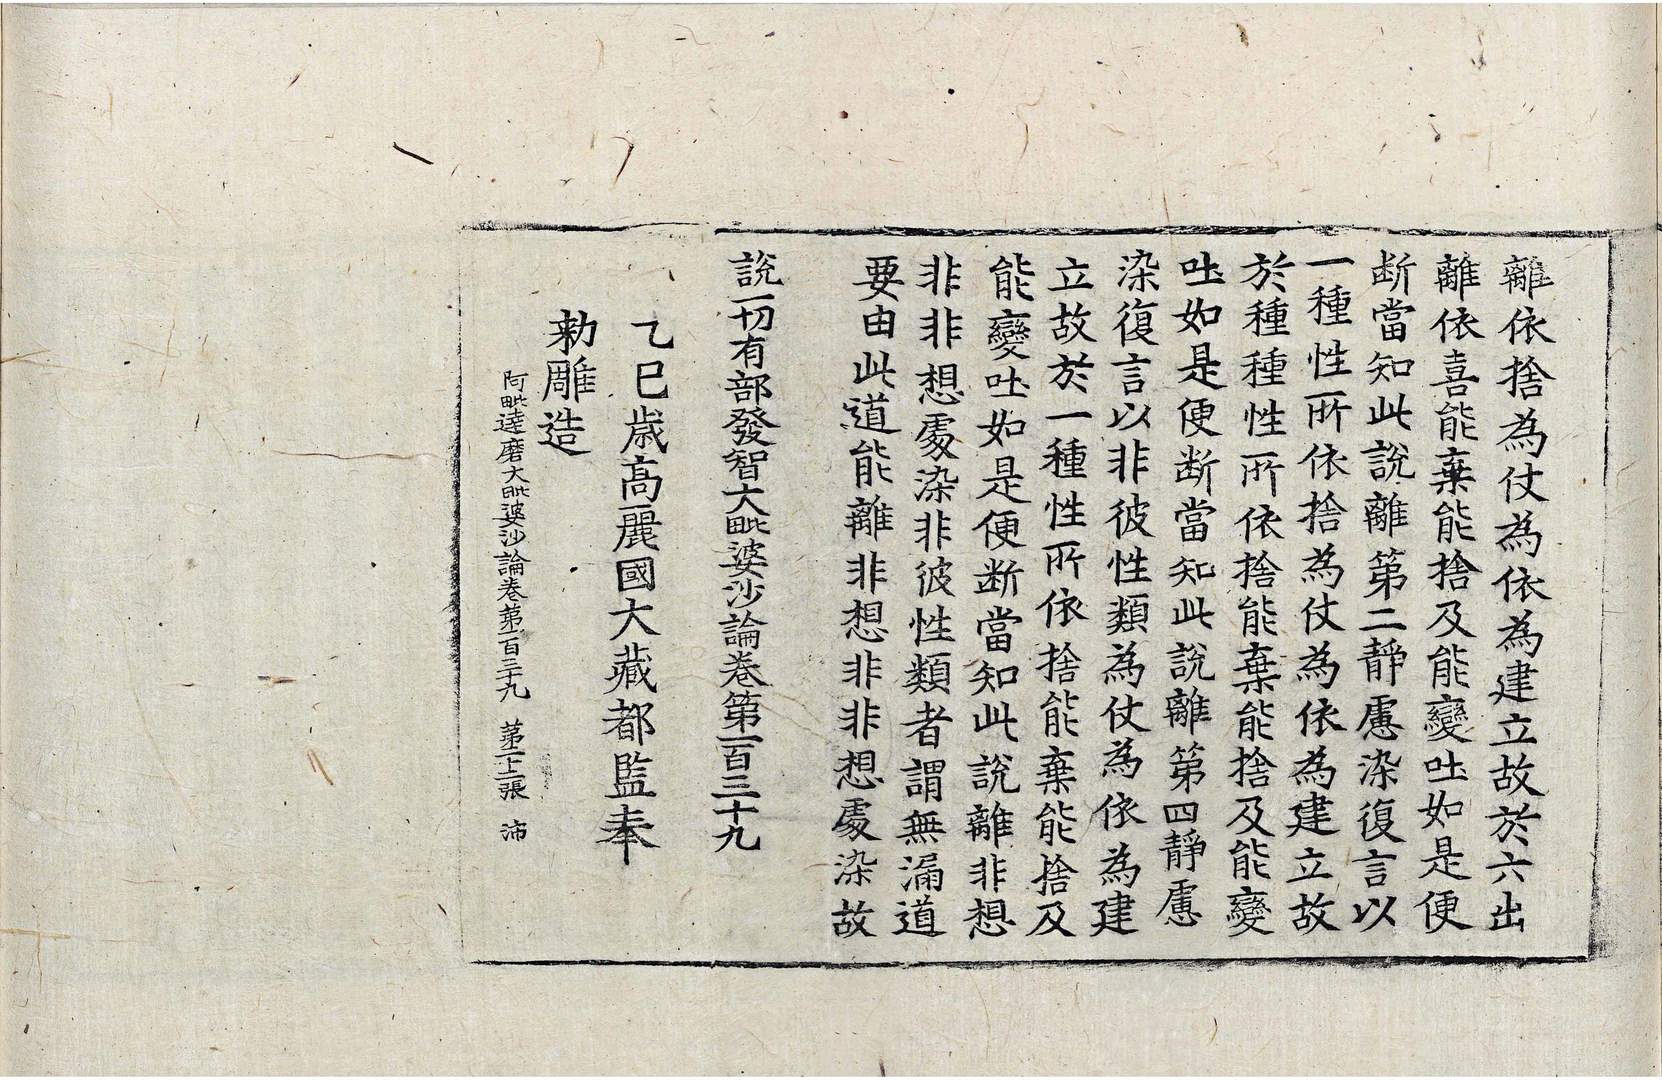 離依捨為仗為依為建立故於六出
離依喜能棄能捨及能變吐如是便
断當知此說離第二靜慮染復言以
一種性所依捨為仗為依為建立故
於種種性所依捨能棄能捨及能變
吐如是便断當知此說離第四靜慮
染復言以非彼性類為仗為依為建
立故於一種性所依捨能棄能捨及
能變吐如是便断當知此說離非想
非非想處染非彼性類者謂無漏道
要由此道能離非想非非想處染故
說一切有部發智大毗婆沙論卷第一百三十九
乙巳歲高麗國大藏都監奉
勑雕造
阿毗達磨大毗婆沙論卷第一百三十九 第二十二張 沛